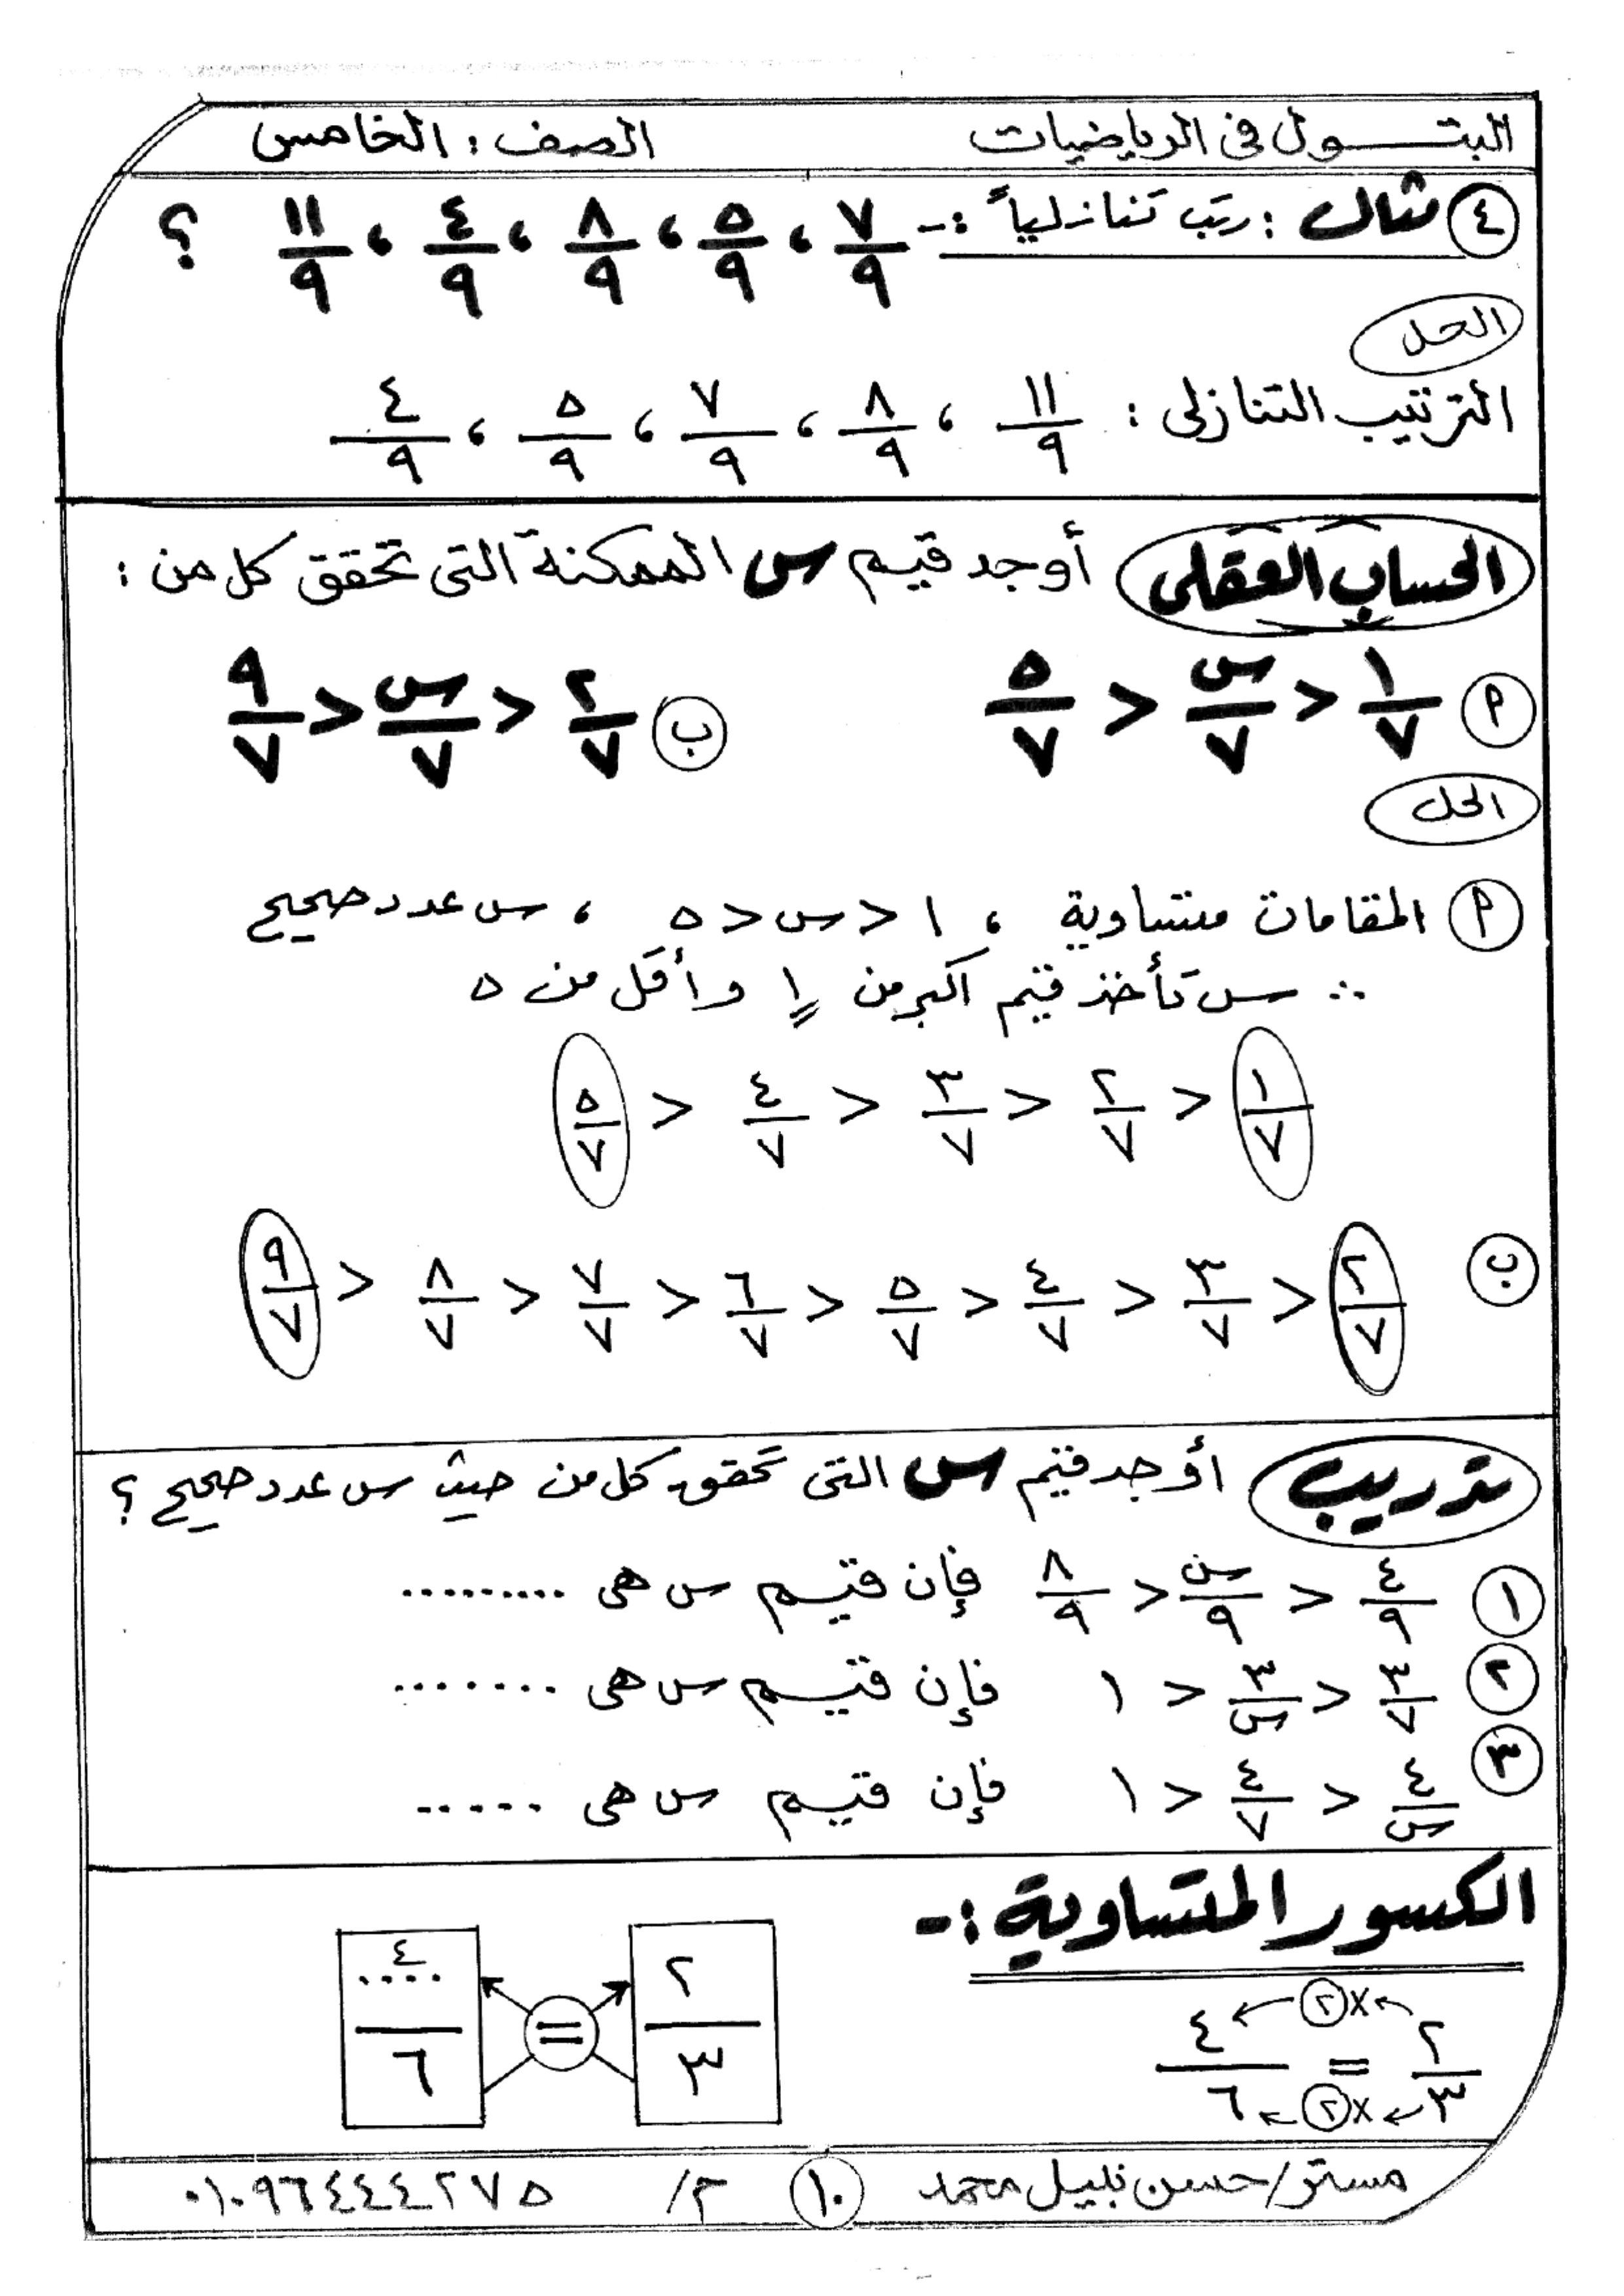 البتــول فى الرياضيات الصف : الخامس
٤ مثال : رتب تنازلياً :- ٧/٩ ، ٥/٩ ، ٨/٩ ، ٤/٩ ، ١١/٩ ؟
الحل
الترتيب التنازلى : ١١/٩ ، ٨/٩ ، ٧/٩ ، ٥/٩ ، ٤/٩
الحساب العقلى أوجد قيم س الممكنة التى تحقق كل من :
أ ١/٧ < س/٧ < ٥/٧ ب ٢/٧ < س/٧ < ٩/٧
الحل
أ المقامات متساوية ، ١ < س < ٥ ، س عدد صحيح
∴ س تأخذ قيم أكبر من ١ وأقل من ٥
١/٧ < ٢/٧ < ٣/٧ < ٤/٧ < ٥/٧
ب ٢/٧ < ٣/٧ < ٤/٧ < ٥/٧ < ٦/٧ < ٧/٧ < ٨/٧ < ٩/٧
تدريب أوجد قيم س التى تحقق كل من حيث س عدد صحيح ؟
١ ٤/٩ < س/٩ < ٨/٩ فإن قيم س هى .........
٢ ٣/٧ < ٣/س < ١ فإن قيم س هى ........
٣ ٤/س < ٤/٧ < ١ فإن قيم س هى ......
الكسور المتساوية :-
٢/٣ = ٤/٦ ×٢ ×٢
٢/٣ = ٤..../٦
مستر/حسن نبيل محمد ١٠ م/ ٠١٠٩٦٤٤٤٢٧٥